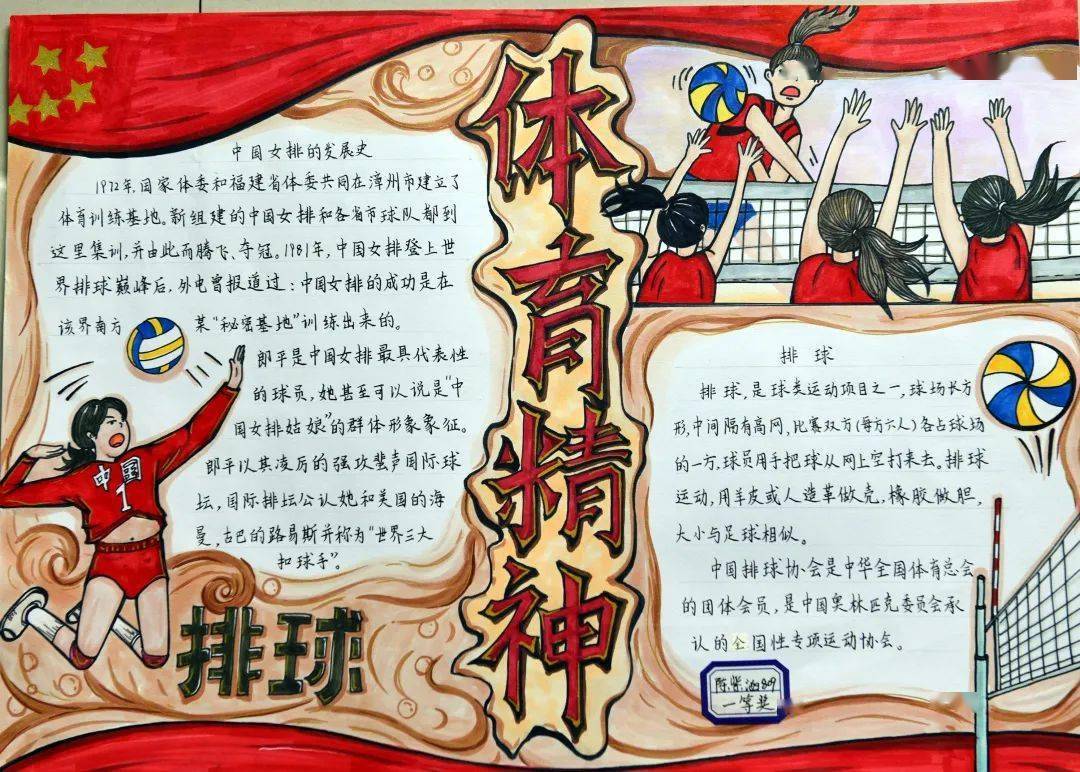 体育精神
中国女排的发展史
1972年,国家体委和福建省体委共同在漳州市建立了
体育训练基地。新组建的中国女排和各省市球队都到
这里集训,并由此而腾飞、夺冠。1981年,中国女排登上世
界排球巅峰后,外电曾报道过:中国女排的成功是在
该界南方某“秘密基地”训练出来的。
郎平是中国女排最具代表性
的球员,她甚至可以说是“中
国女排姑娘”的群体形象象征。
郎平以其凌厉的强攻蜚声国际球
坛,国际排坛公认她和美国的海
曼,古巴的路易斯并称为“世界三大
扣球手”。
中國
1
排球
排球
排球,是球类运动项目之一,球场长方
形,中间隔有高网,比赛双方(每方六人)各占球场
的一方,球员用手把球从网上空打来去。排球
运动,用羊皮或人造革做壳,橡胶做胆,
大小与足球相似。
中国排球协会是中华全国体育总会
的团体会员,是中国奥林匹克委员会承
认的全国性专项运动协会。
809
一等奖